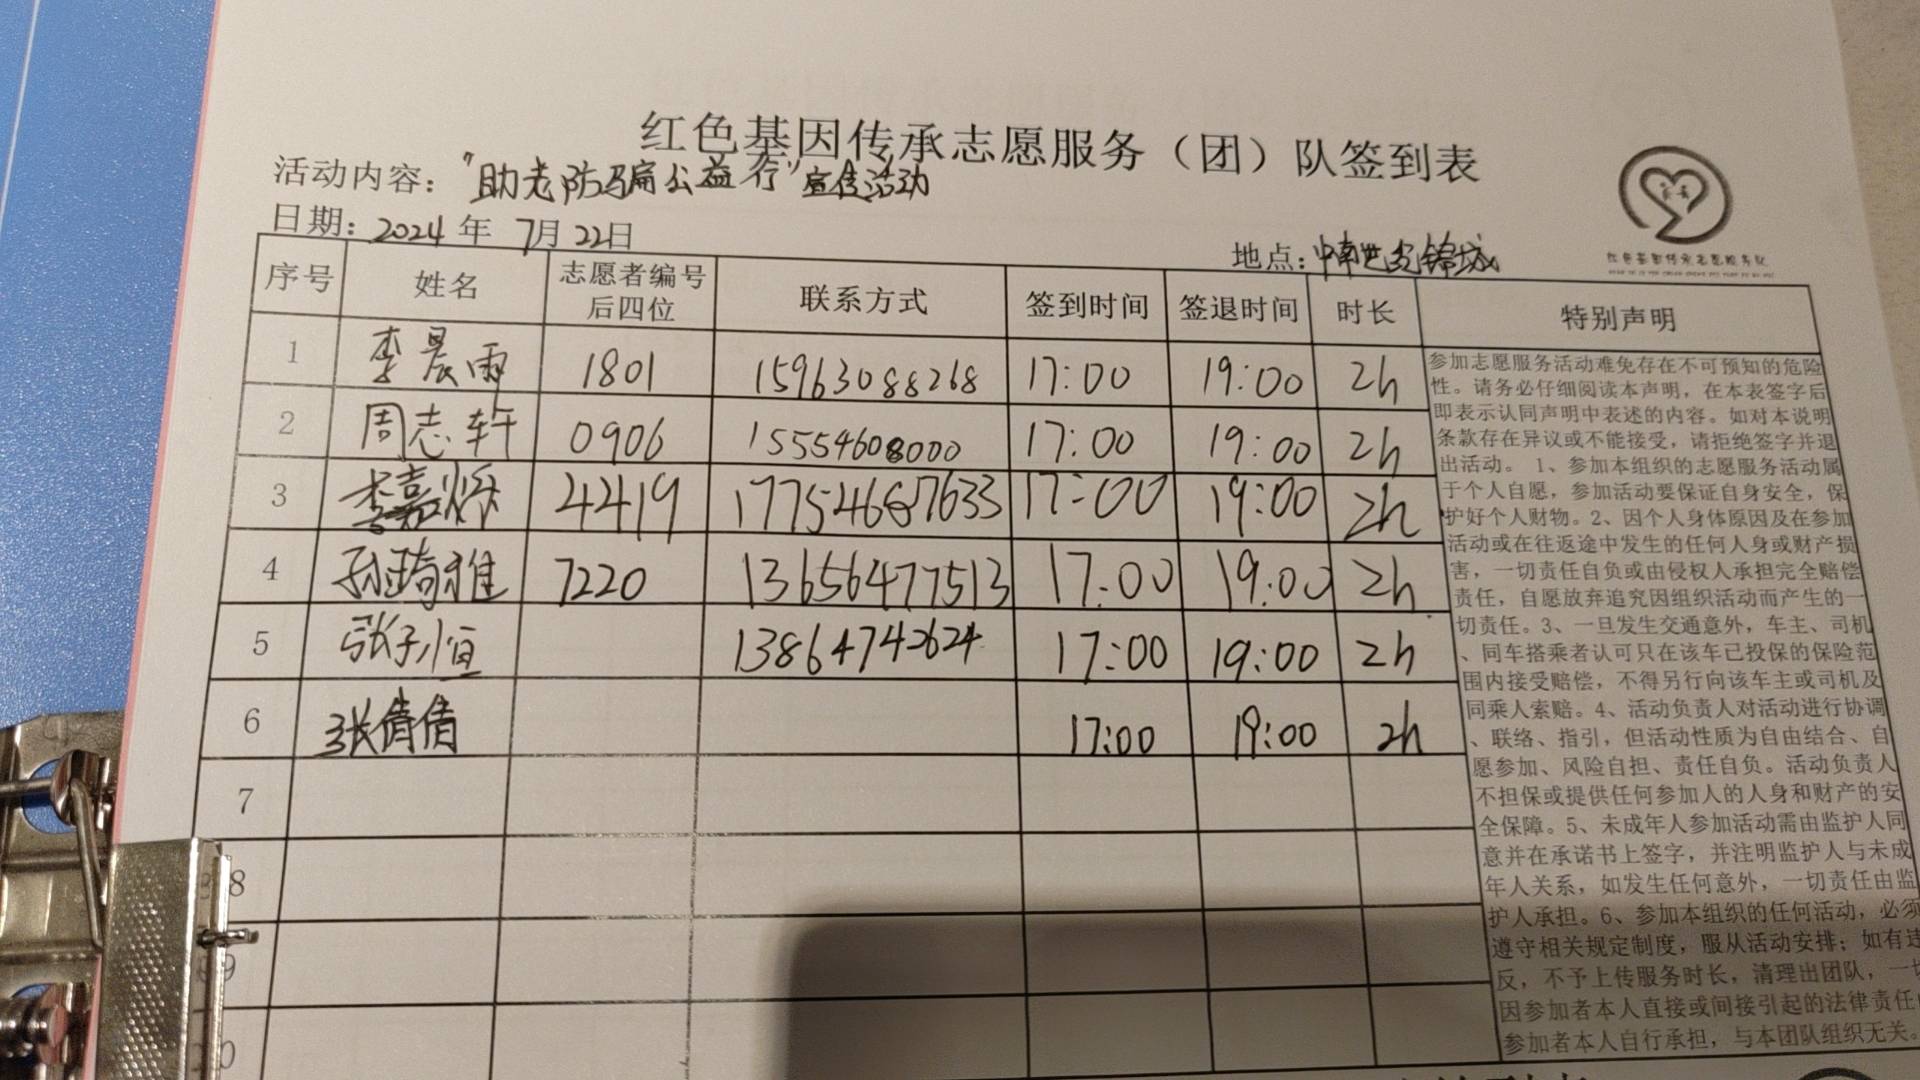 红色基因传承志愿服务（团）队签到表
活动内容："助老防骗公益行"宣传活动
日期：2024年 7月22日
地点：中南世纪锦城
红色基因传承志愿服务队
序号 姓名 志愿者编号后四位 联系方式 签到时间 签退时间 时长 特别声明
1 李晨雨 1801 15963088268 17:00 19:00 2h
2 周志轩 0906 15554608000 17:00 19:00 2h
3 李嘉烁 4419 17754687633 17:00 19:00 2h
4 孙琦雅 7220 13656477513 17:00 19:00 2h
5 张子恒 13864742624 17:00 19:00 2h
6 张倩倩 17:00 19:00 2h
7
8
9
10
参加志愿服务活动难免存在不可预知的危险
性。请务必仔细阅读本声明，在本表签字后
即表示认同声明中表述的内容。如对本说明
条款存在异议或不能接受，请拒绝签字并退
出活动。 1、参加本组织的志愿服务活动属
于个人自愿，参加活动要保证自身安全，保
护好个人财物。2、因个人身体原因及在参加
活动或在往返途中发生的任何人身或财产损
害，一切责任自负或由侵权人承担完全赔偿
责任，自愿放弃追究因组织活动而产生的一
切责任。3、一旦发生交通意外，车主、司机
、同车搭乘者认可只在该车已投保的保险范
围内接受赔偿，不得另行向该车主或司机及
同乘人索赔。4、活动负责人对活动进行协调
、联络、指引，但活动性质为自由结合、自
愿参加、风险自担、责任自负。活动负责人
不担保或提供任何参加人的人身和财产的安
全保障。5、未成年人参加活动需由监护人同
意并在承诺书上签字，并注明监护人与未成
年人关系，如发生任何意外，一切责任由监
护人承担。6、参加本组织的任何活动，必须
遵守相关规定制度，服从活动安排；如有违
反，不予上传服务时长，清理出团队，一切
因参加者本人直接或间接引起的法律责任
参加者本人自行承担，与本团队组织无关。